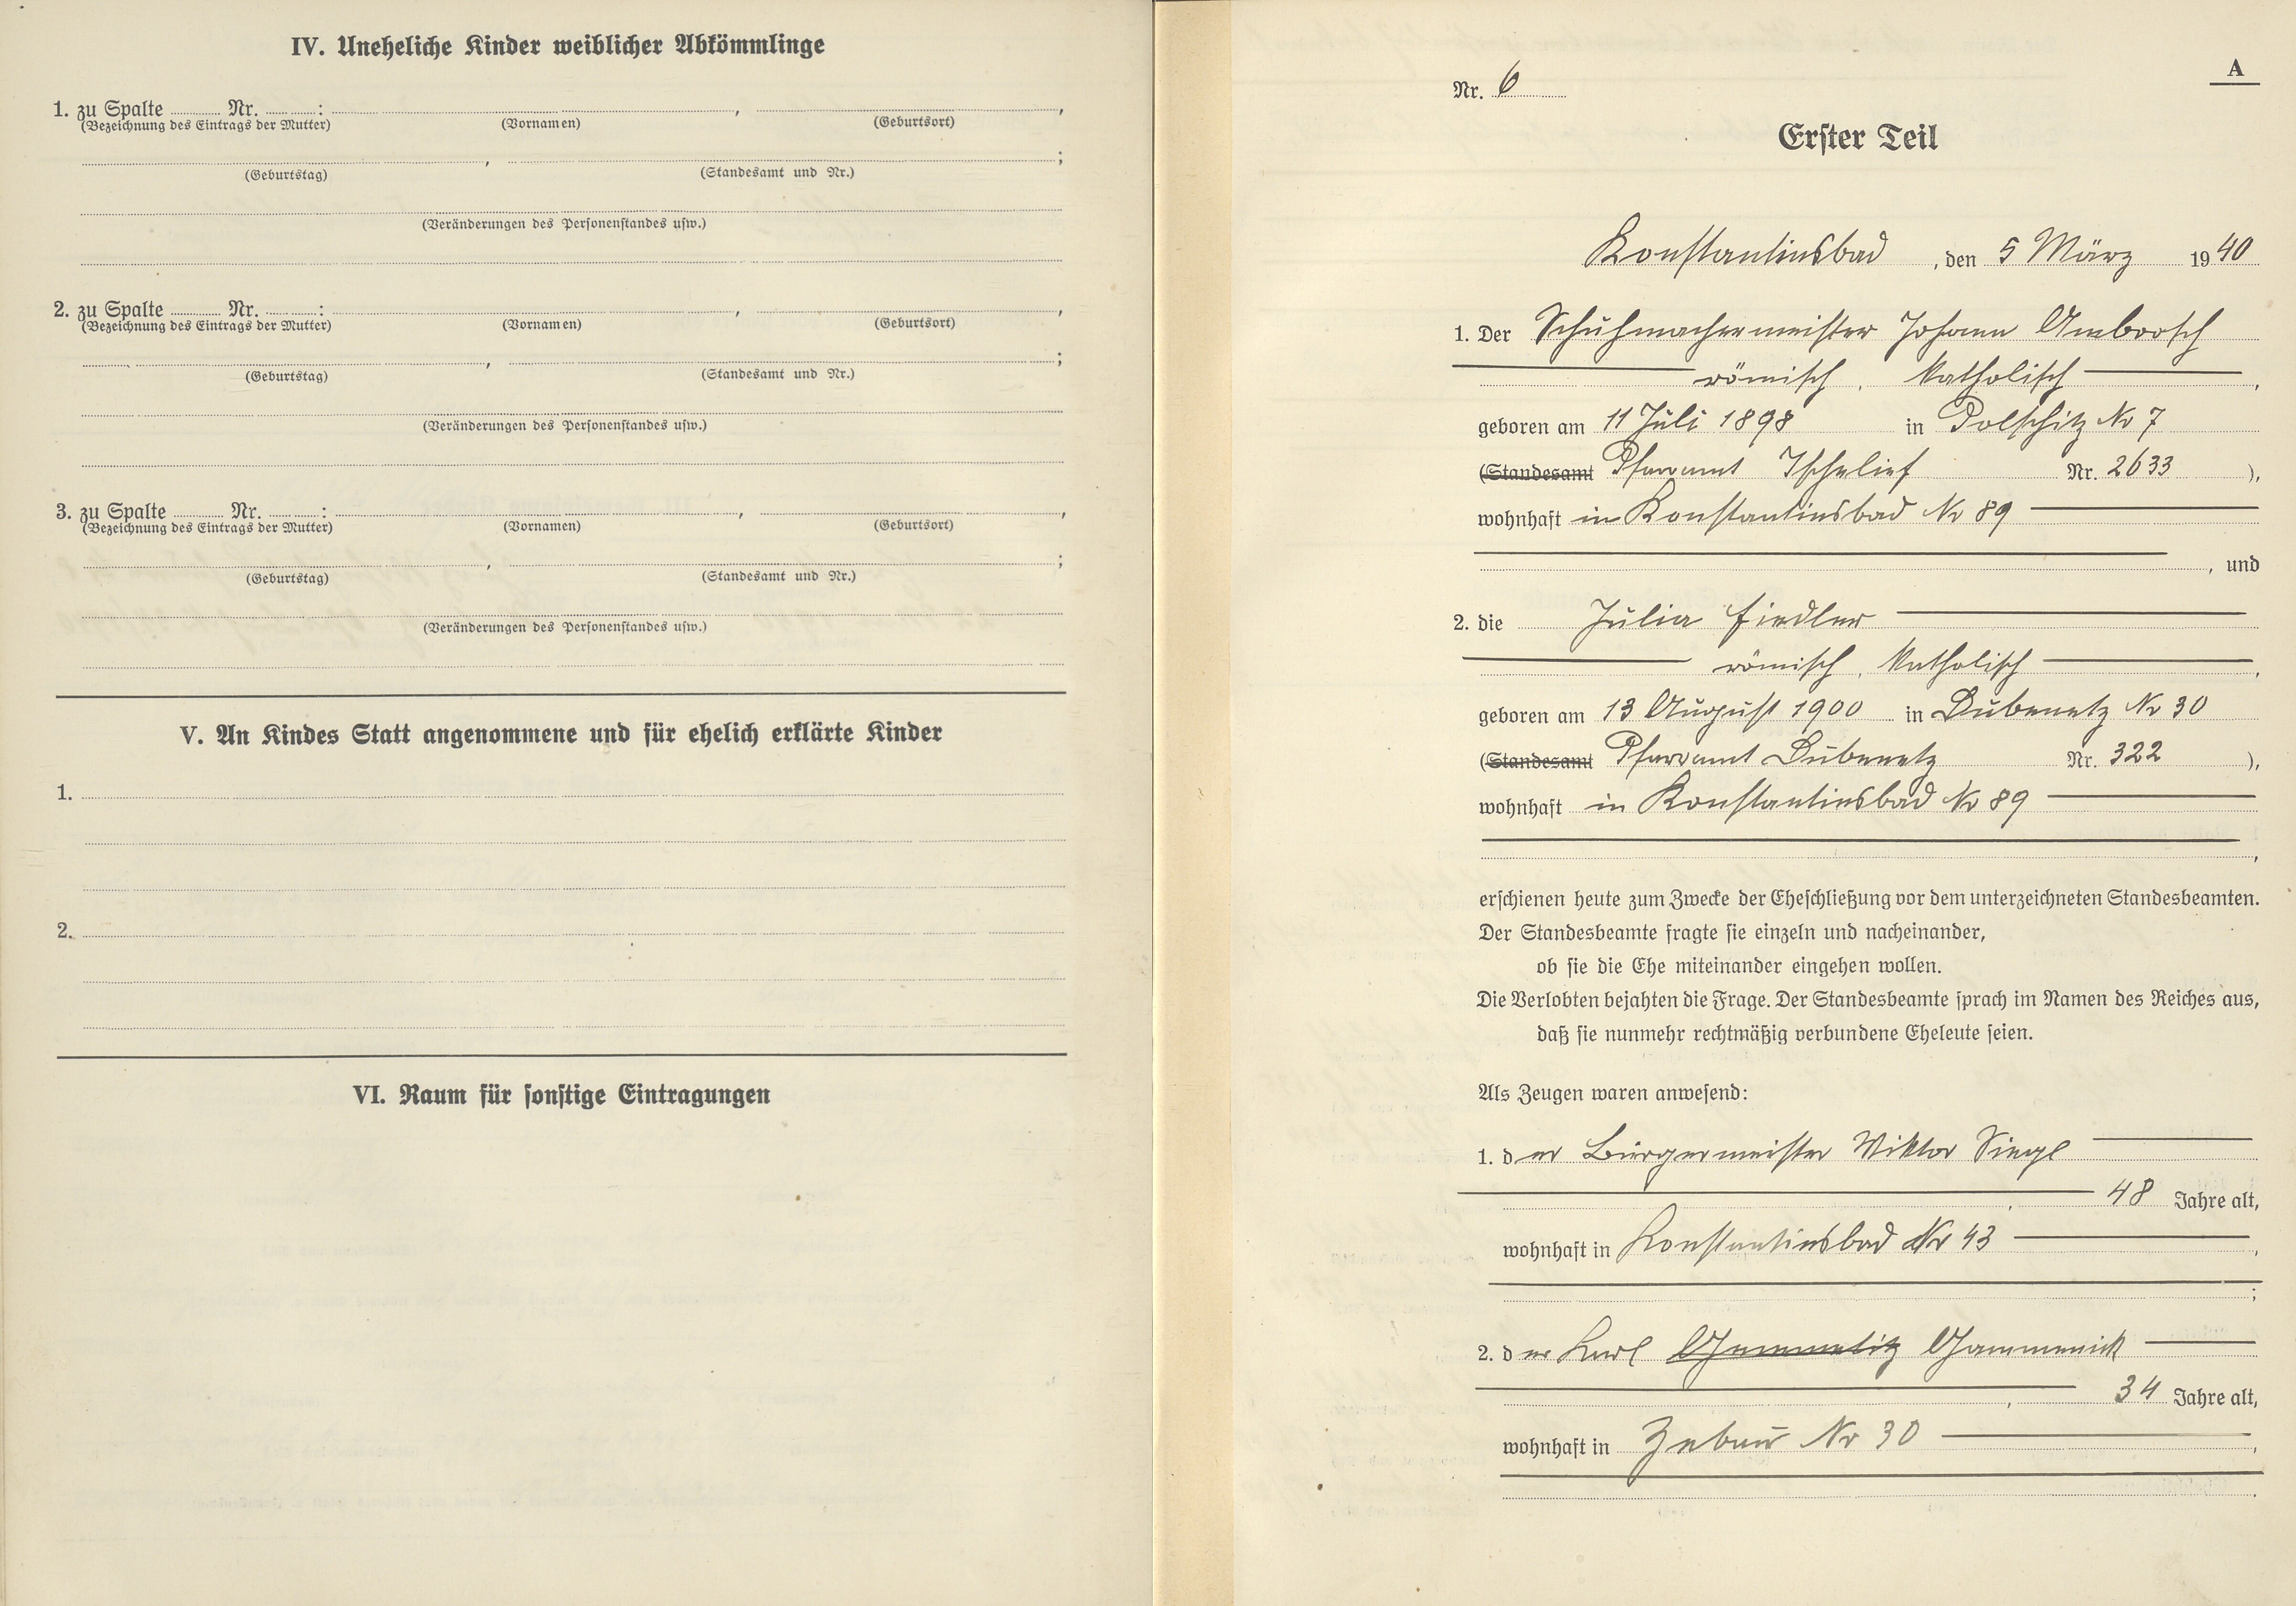 IV. Uneheliche Kinder weiblicher Abkömmlinge
1. zu Spalte ........ Nr. ........:
(Bezeichnung des Eintrags der Mutter) (Vornamen) (Geburtsort)
(Geburtstag) (Standesamt und Nr.)
(Veränderungen des Personenstandes usw.)
2. zu Spalte ........ Nr. ........:
(Bezeichnung des Eintrags der Mutter) (Vornamen) (Geburtsort)
(Geburtstag) (Standesamt und Nr.)
(Veränderungen des Personenstandes usw.)
3. zu Spalte ........ Nr. ........:
(Bezeichnung des Eintrags der Mutter) (Vornamen) (Geburtsort)
(Geburtstag) (Standesamt und Nr.)
(Veränderungen des Personenstandes usw.)
V. An Kindes Statt angenommene und für ehelich erklärte Kinder
1.
2.
VI. Raum für sonstige Eintragungen
A
Nr. 6
Erster Teil
Konstantinsbad, den 5 März 1940
1. Der Schuhmachermeister Johann Ambrosch
römisch katholisch,
geboren am 11 Juli 1898 in Polschitz Nr 7
(Standesamt Pfarramt Tschelief Nr. 2633),
wohnhaft in Konstantinsbad Nr 89
, und
2. die Julia Fiedler
römisch katholisch,
geboren am 13 August 1900 in Dubenetz Nr 30
(Standesamt Pfarramt Dubenetz Nr. 322),
wohnhaft in Konstantinsbad Nr 89
erschienen heute zum Zwecke der Eheschließung vor dem unterzeichneten Standesbeamten.
Der Standesbeamte fragte sie einzeln und nacheinander,
ob sie die Ehe miteinander eingehen wollen.
Die Verlobten bejahten die Frage. Der Standesbeamte sprach im Namen des Reiches aus,
daß sie nunmehr rechtmäßig verbundene Eheleute seien.
Als Zeugen waren anwesend:
1. der Bürgermeister Wiktor Siegl
48 Jahre alt,
wohnhaft in Konstantinsbad Nr 43,
2. der Karl
34 Jahre alt,
wohnhaft in Zebau Nr 30,